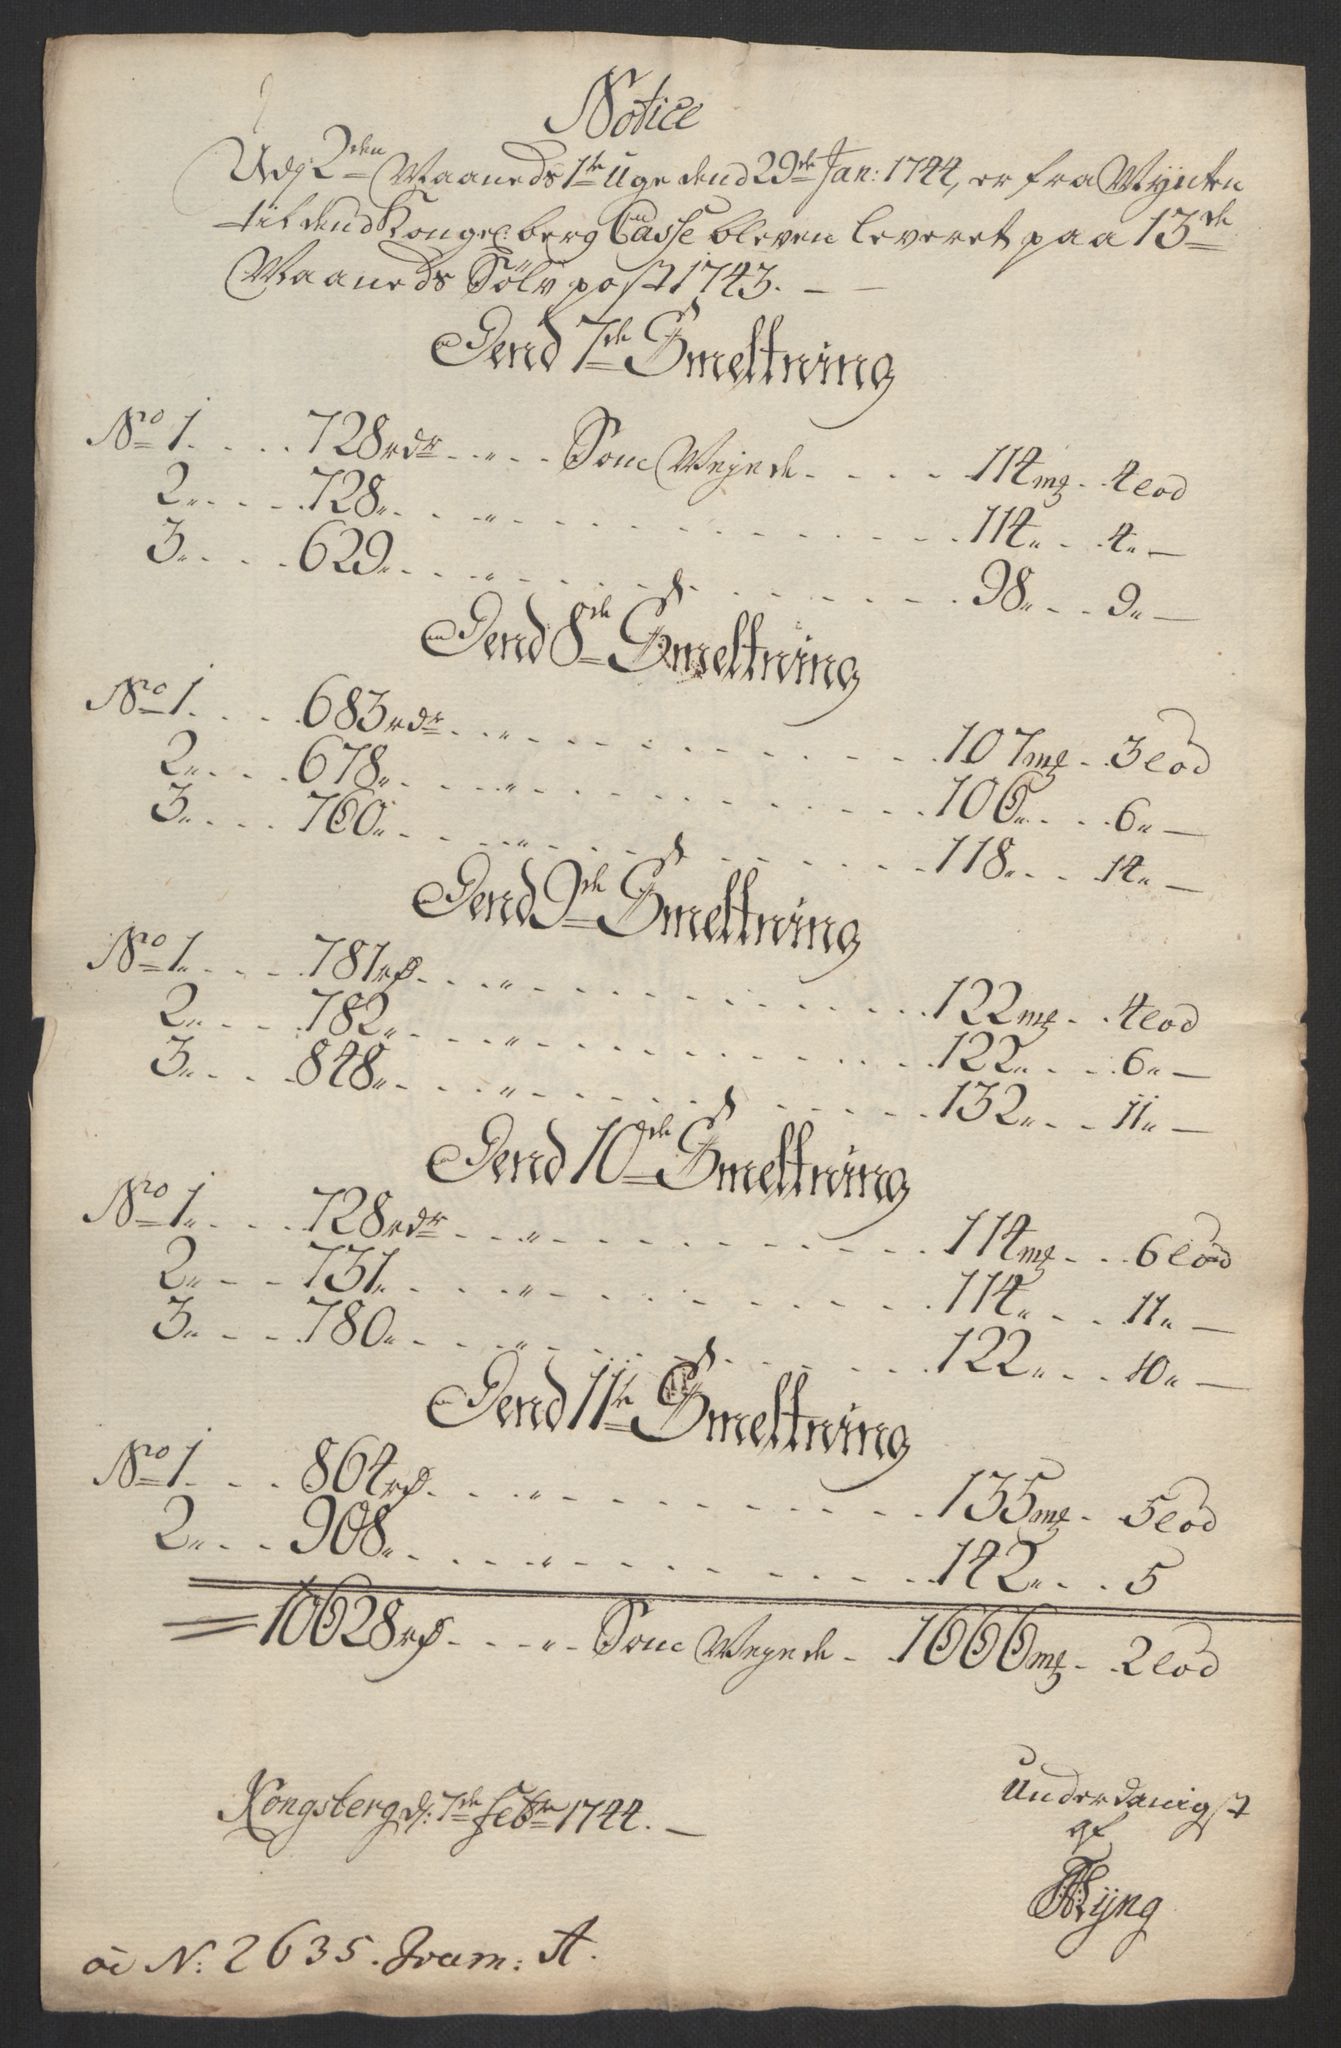 Notice
Udj 2den Maaneds 1te Uge dend 29de Jan: 1744, er fra Mÿnten
til dend Kongel: berg Casse bleven leveret paa 13de
Maaneds Sölv post 1743. —
Dend 7de Smeltning
No 1. . . . . 728 rdr . . „ . . Som Wejede . . . . 114 mg . 4 lod
2„ . . . . 728„ . . . „ . . . . 114„ . . 4„ —
3„ . . . . 629„ . . . „ . . . . 98„ . . 9„ —
Dend 8de Smeltning
No 1. . . . . 683 rdr . . „ . . . . 107 mg . . 3 lod
2„ . . . . 678„ . . . „ . . . . 106„ . . . 6„ —
3„ . . . . 760„ . . . „ . . . . 118„ . . . 14„ —
Dend 9de Smeltning
No 1„ . . . . 781 rd . . . „ . . . . 122 mg . . 4 lod
2„ . . . . 782„ . . . „ . . . . 122„ . . . 6„ —
3„ . . . . 848„ . . . „ . . . . 132„ . . . 11„ —
Dend 10de Smeltning
No 1„ . . . . 728 rdr . . . „ . . . . 114 mg . . 6 lod
2„ . . . . 731„ . . . „ . . . . 114„ . . . 11„ —
3„ . . . . 780„ . . . „ . . . . 122„ . . . 10„ —
Dend 11te Smeltning
No 1. . . . . 864 rd . . . „ . . . . 135 mg . . 5 lod
2„ . . . 908„ . . . „ . . . . 142„ . . . 5
= 10628 rd . . . „ . . Som Wejede . 1666 mg . . 2 lod
Kongsberg d: 7de Febr 1744. —
Underdanigst
af
Ryng
N: 2635. Fram: A.